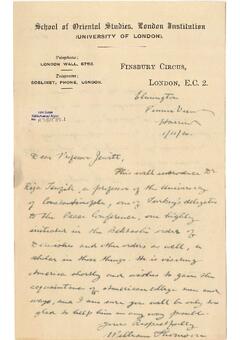 School of Oriental Studies, London Institution
(UNIVERSITY OF LONDON).
Telephone:
LONDON WALL, 6792.
Telegrams:
SOELINST, PHONE, LONDON.
FINSBURY CIRCUS,
LONDON, E.C. 2.
Pinner View
Harrow
Dear Professor Jewett,
This will introduce Dr.
Riza Tewfik, a professor of the University
of Constantinople, one of Turkey's delegates
to the Peace Conference, one highly
initiated in the Bektashi order of
Dervishes and other orders as well, a
scholar in these things. He is visiting
America shortly and wishes to gain the
acquaintance of American college men and
ways, and I am sure you will be only too
glad to help him in any way possible.
Yours respectfully
William Thomson